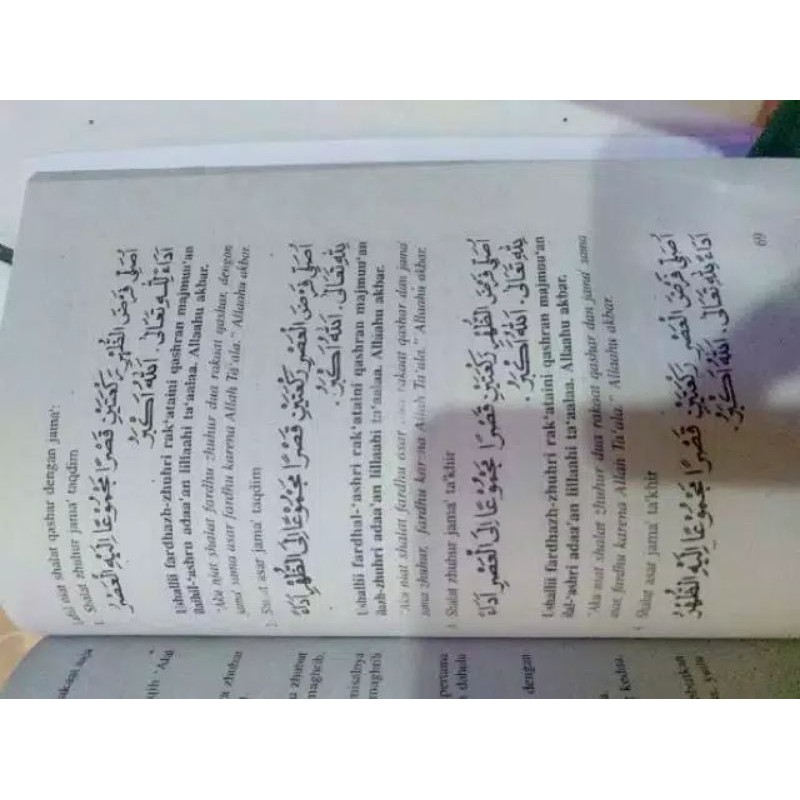 niat shalat qashar dengan jama':
1. Shalat zhuhur jama' taqdim
اُصَلِّى فَرْضَ الظُّهْرِ رَكْعَتَيْنِ قَصْرًا مَجْمُوْعًا اِلَيْهِ الْعَصْرُ
اَدَاءً لِلّٰهِ تَعَالَى. اَللّٰهُ اَكْبَرُ
Ushallii fardhazh-zhuhri rak'ataini qashran majmuu'an
ilaihil-'ashru adaa'an lillaahi ta'aalaa. Allaahu akbar.
"Aku niat shalat fardhu zhuhur dua rakaat qashar, dengan
jama' sama asar fardhu karena Allah Ta'ala." Allaahu akbar.
2. Shalat asar jama' taqdim
اُصَلِّى فَرْضَ الْعَصْرِ رَكْعَتَيْنِ قَصْرًا مَجْمُوْعًا اِلَى الظُّهْرِ اَدَاءً
لِلّٰهِ تَعَالَى. اَللّٰهُ اَكْبَرُ.
Ushallii fardhal-'ashri rak'ataini qashran majmuu'an
ilazh-zhuhri adaa'an lillaahi ta'aalaa. Allaahu akbar.
"Aku niat shalat fardhu asar dua rakaat qashar dan jama'
sama zhuhur, fardhu karena Allah Ta'ala." Allaahu akbar.
3. Shalat zhuhur jama' ta'khir
اُصَلِّى فَرْضَ الظُّهْرِ رَكْعَتَيْنِ قَصْرًا مَجْمُوْعًا اِلَى الْعَصْرِ اَدَاءً
لِلّٰهِ تَعَالَى. اَللّٰهُ اَكْبَرُ.
Ushallii fardhazh-zhuhri rak'ataini qashran majmuu'an
ilal-'ashri adaa'an lillaahi ta'aalaa. Allaahu akbar.
"Aku niat shalat zhuhur dua rakaat qashar dan jama' sama
asar, fardhu karena Allah Ta'ala." Allaahu akbar.
4. Shalat asar jama' ta'khir
اُصَلِّى فَرْضَ الْعَصْرِ رَكْعَتَيْنِ قَصْرًا مَجْمُوْعًا اِلَيْهِ الظُّهْرُ
اَدَاءً لِلّٰهِ تَعَالَى. اَللّٰهُ اَكْبَرُ.
69
zhuhur
u zhuhur
maghrib.
misalnya
maghrib
pertama
dahulu
dengan
kedua.